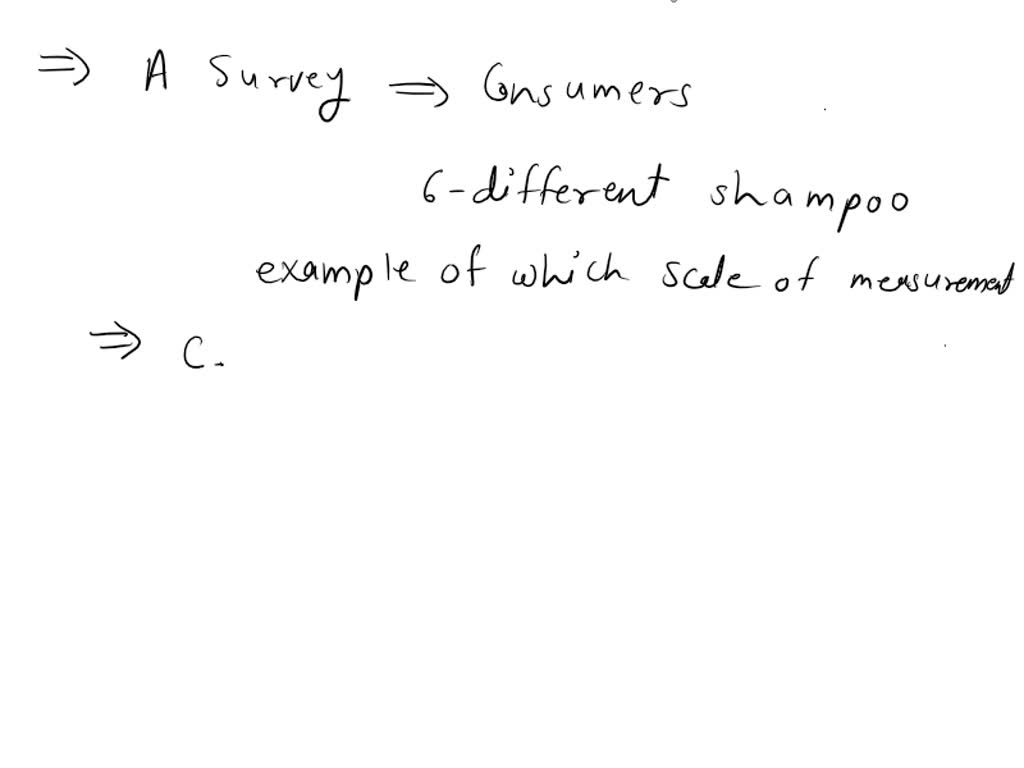 ⇒ A Survey ⇒ Consumers
6-different shampoo
example of which scale of measurement
⇒ C.